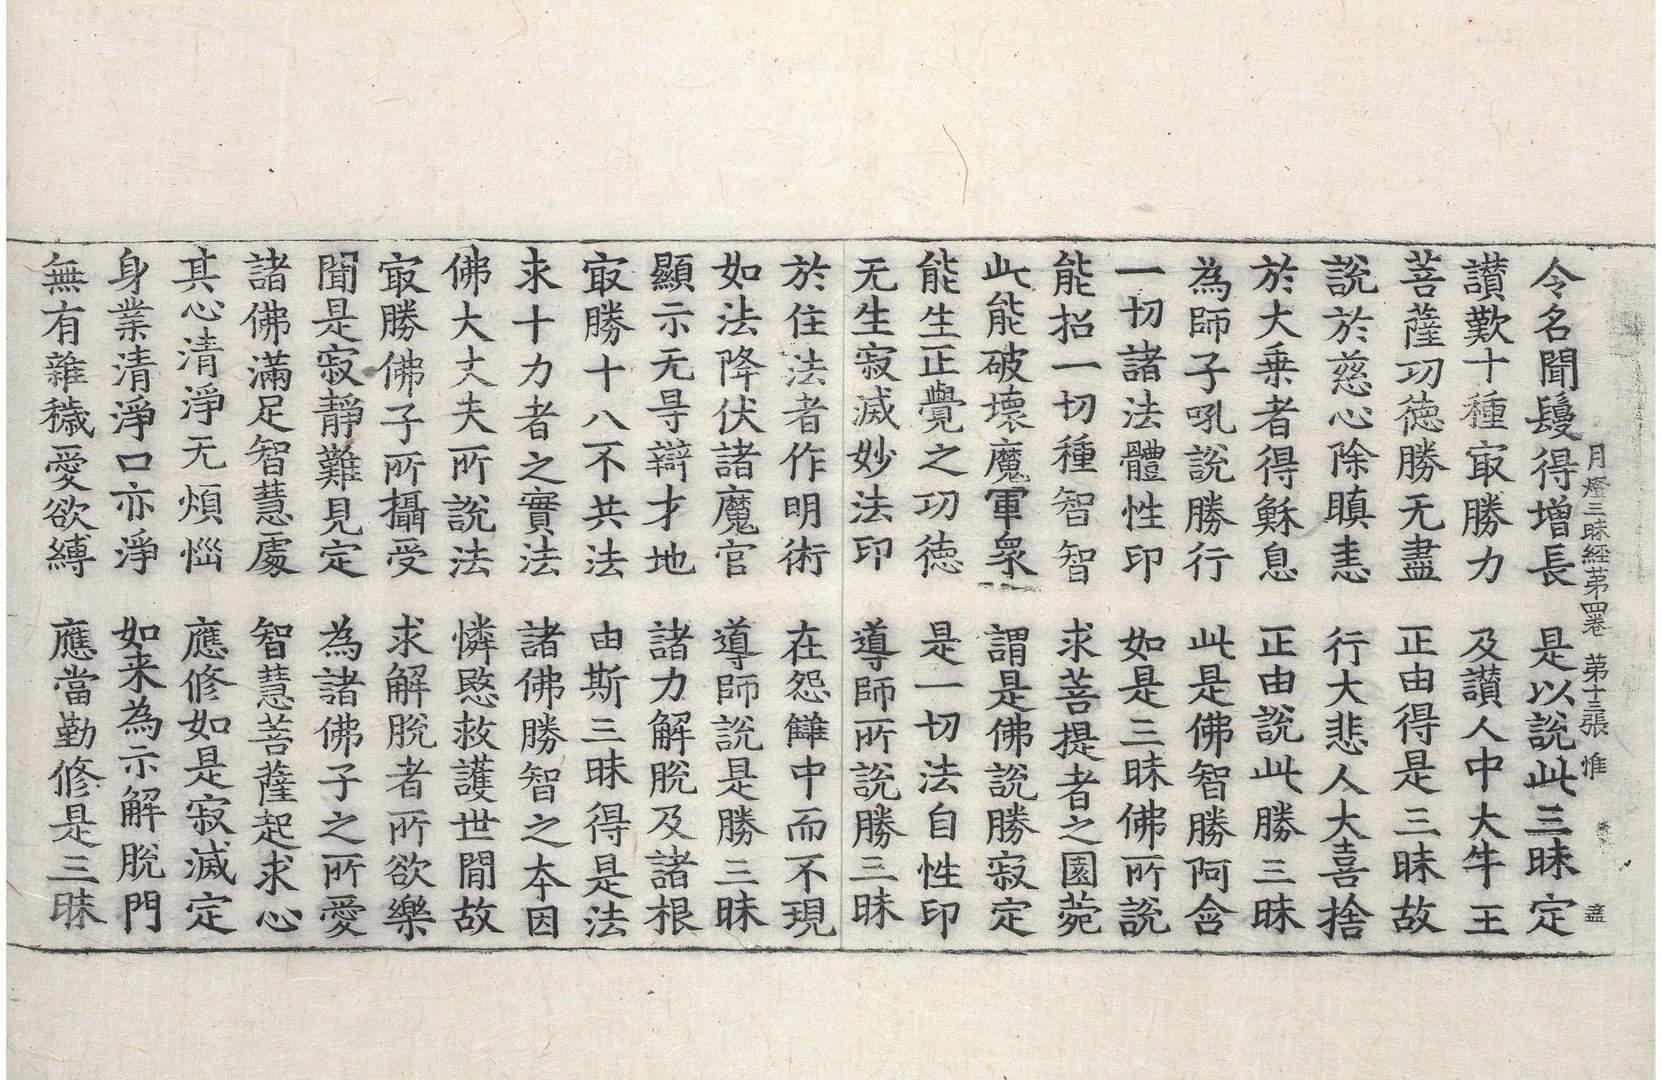 月燈三昧經第四卷 第十三張 惟 盡
令名聞鬘得增長 是以說此三昧定
讃歎十種㝡勝力 及讃人中大牛王
菩薩功德勝无盡 正由得是三昧故
說於慈心除瞋恚 行大悲人大喜捨
於大乗者得穌息 正由說此勝三昧
為師子吼說勝行 此是佛智勝阿含
一切諸法體性印 如是三昧佛所說
能招一切種智智 求菩提者之園菀
此能破壞魔軍衆 謂是佛說勝寂定
能生正覺之功德 是一切法自性印
无生寂滅妙法印 導師所說勝三昧
於住法者作明術 在怨讎中而不現
如法降伏諸魔官 導師說是勝三昧
顯示无㝵辯才地 諸力解脫及諸根
㝡勝十八不共法 由斯三昧得是法
求十力者之實法 諸佛勝智之夲因
佛大丈夫所說法 憐愍救護世閒故
㝡勝佛子所攝受 求解脫者所欲樂
聞是寂靜難見定 為諸佛子之所愛
諸佛滿足智慧處 智慧菩薩起求心
其心清淨无煩惱 應修如是寂滅定
身業清淨口亦淨 如来為示解脫門
無有雜穢愛欲縛 應當勤修是三昧